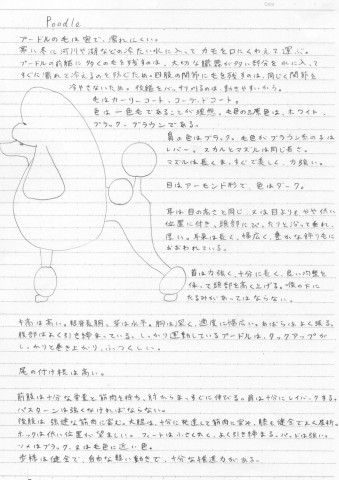 Poodle
プードルの毛は密で、濡れにくい。
寒い冬に河川や湖などの冷たい水に入ってカモを口にくわえて運ぶ。
プードルの前躯に多くの毛を残すのは、大切な臓器が多い部分を水に入って
すぐに濡れて冷えるのを防ぐため。四肢の関節に毛を残すのは、同じく関節を
冷やさないため。後躯をバッサリ刈るのは、動きやすいから。
毛はカーリーコート、コーデッドコート。
色は一色毛であることが理想。毛色の三原色は、ホワイト、
ブラック、ブラウンである。
鼻の色はブラック。毛色がブラウン系の子は
レバー。スカルとマズルは同じ長さ。
マズルは長くまっすぐで美しく、力強い。
目はアーモンド形で、色はダーク。
耳は目の高さと同じ、又は目よりもやや低い
位置に付き、頭部にぴったりと沿って垂れ、
厚い。耳朶は長く、幅広く、豊かな飾り毛に
おおわれている。
首は力強く、十分に長く、良い均整を
保って頭部を高く上げる。喉の下に
たるみがあってはならない。
キ甲は高い。短背長胴、背は水平。胸は深く、適度に幅広い。あばらはよく張る。
腹部はよく引き締まっている。しっかり運動しているプードルは、タックアップが
しっかりと巻き上がり、ふつくしい。
尾の付け根は高い。
前肢は十分な骨量と筋肉を持ち、肘からまっすぐに伸びる。肩は十分にレイバックする。
パスターンは強くなければならない。
後肢は強健な筋肉に富む。大腿は、十分に発達して筋肉に富み、膝も健全でよく屈折。
ホックは低い位置が望ましい。フィートは小さく丸く、よく引き締まる。パッドは強い。
ツメはブラック、又は毛色に近い色。
歩様は健全で、自由な軽い動きで、十分な推進力がある。